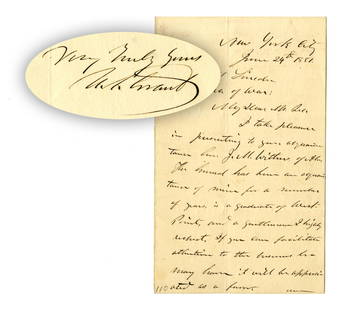 Very Truly Yours
U. S. Grant
New York City
June 24th 1881
Lincoln
of War:
My Dear Mr. Sec.
I take pleasure
in presenting to your acquain
tance Gen. J. M. Withers of Ala.
The General has been an acquain
tance of mine for a number
of years, is a graduate of West
Point, and a gentleman I highly
respect. If you can facilitate
attention to the business he
may have it will be appreci
ated as a favor.